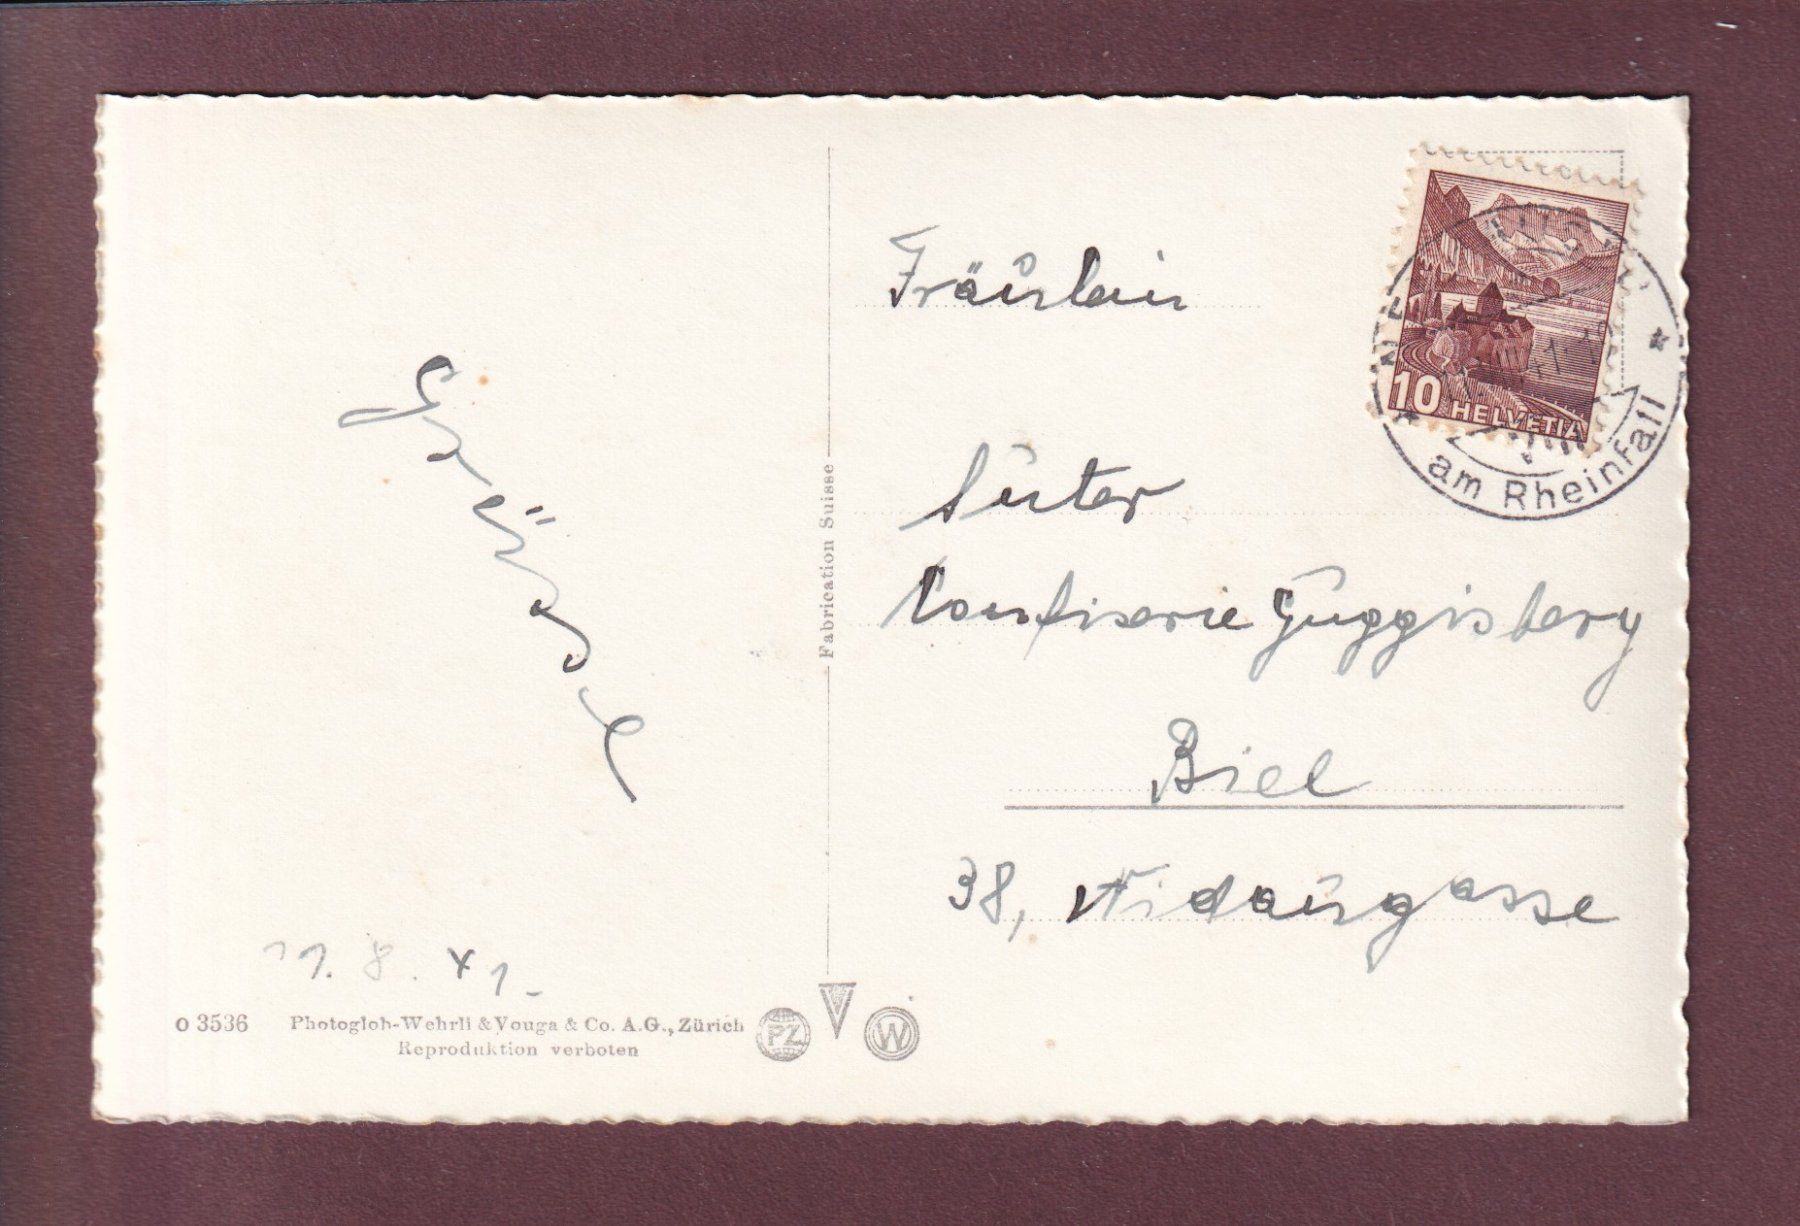 Fräulein
Suter
Confiserie Guggisberg
Biel
38, Nidaugasse
11. 8. 41.
10 HELVETIA
am Rheinfall
Fabrication Suisse
o 3536 Photoglob-Wehrli & Vouga & Co. A.G., Zürich
Reproduktion verboten
PZ
V
W